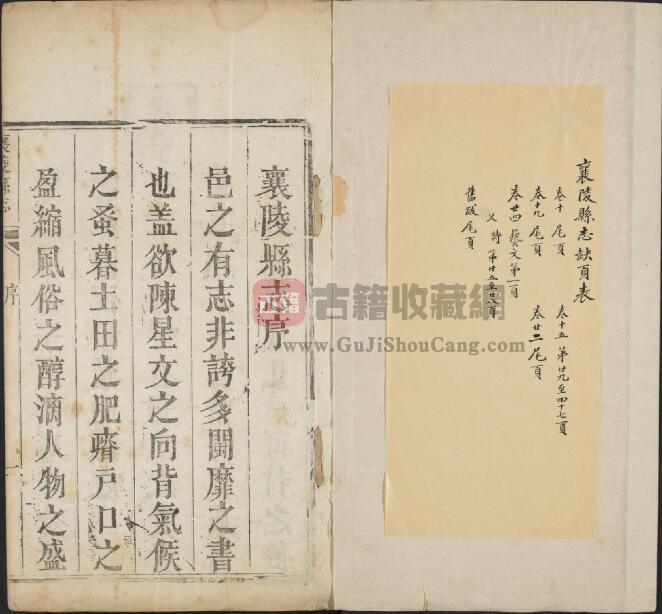 襄陵縣志缺頁表
卷十 尾頁
卷十五 第廿九至四十七頁
卷十九 尾頁
卷廿二 尾頁
卷廿四 藝文第一頁
又 詩 第廿五至廿八頁
舊跋尾頁
襄陵縣志序
邑之有志非誇多鬪靡之書
也蓋欲陳星文之向背氣候
之蚤暮土田之肥瘠戸口之
盈縮風俗之醇漓人物之盛
襄陵縣志
序
一
古籍
古籍收藏網
www.GuJiShouCang.com